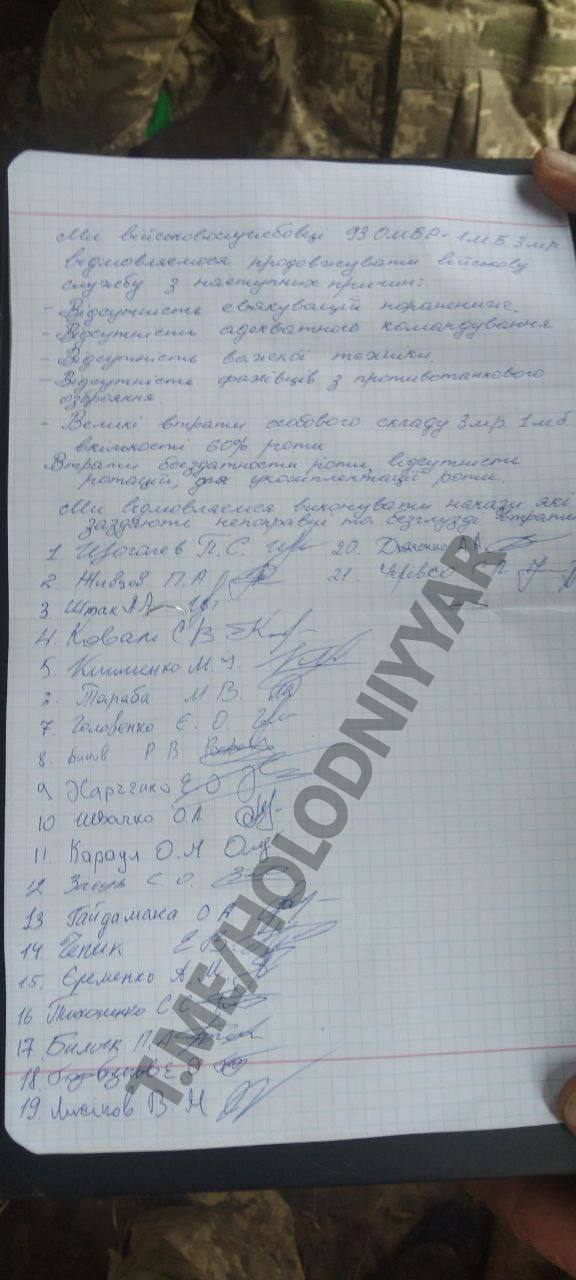 Ми військовослужбовці 93 ОМБР 1МБ 3мр
відмовляємося продовжувати військову
службу з наступних причин:
- Відсутність евякуацій поранених.
- Відсутність адекватного командування
- Відсутність важкої техніки.
- Відсутність фахівців з противотанкового
озброяння
- Великі втрати особового складу 3мр 1мб
вкількості 60% роти
Втрати боєздатности роти, відсутність
ротації, для укомплектації роти.
Ми відмовляємися виконувати накази які
заздають непоправні та безглузді втрати
1 П.С. 20. А.А.
2. Живцов П.А 21. Черевко
3. Шпак
4. Коваль С В
5. Клименко М.
Тараба М В.
7. Головенко Є. О
8. Р В
9 Харченко Е О
10 Швачко О.Л
11 Караул О.М
12 С. О.
13 Гайдамака О А
14 Чепік Е
15. Єременко А М.
16 Тихоненко С
17 Билык П.А
18
19. В М
T.ME/HOLODNIYYAR